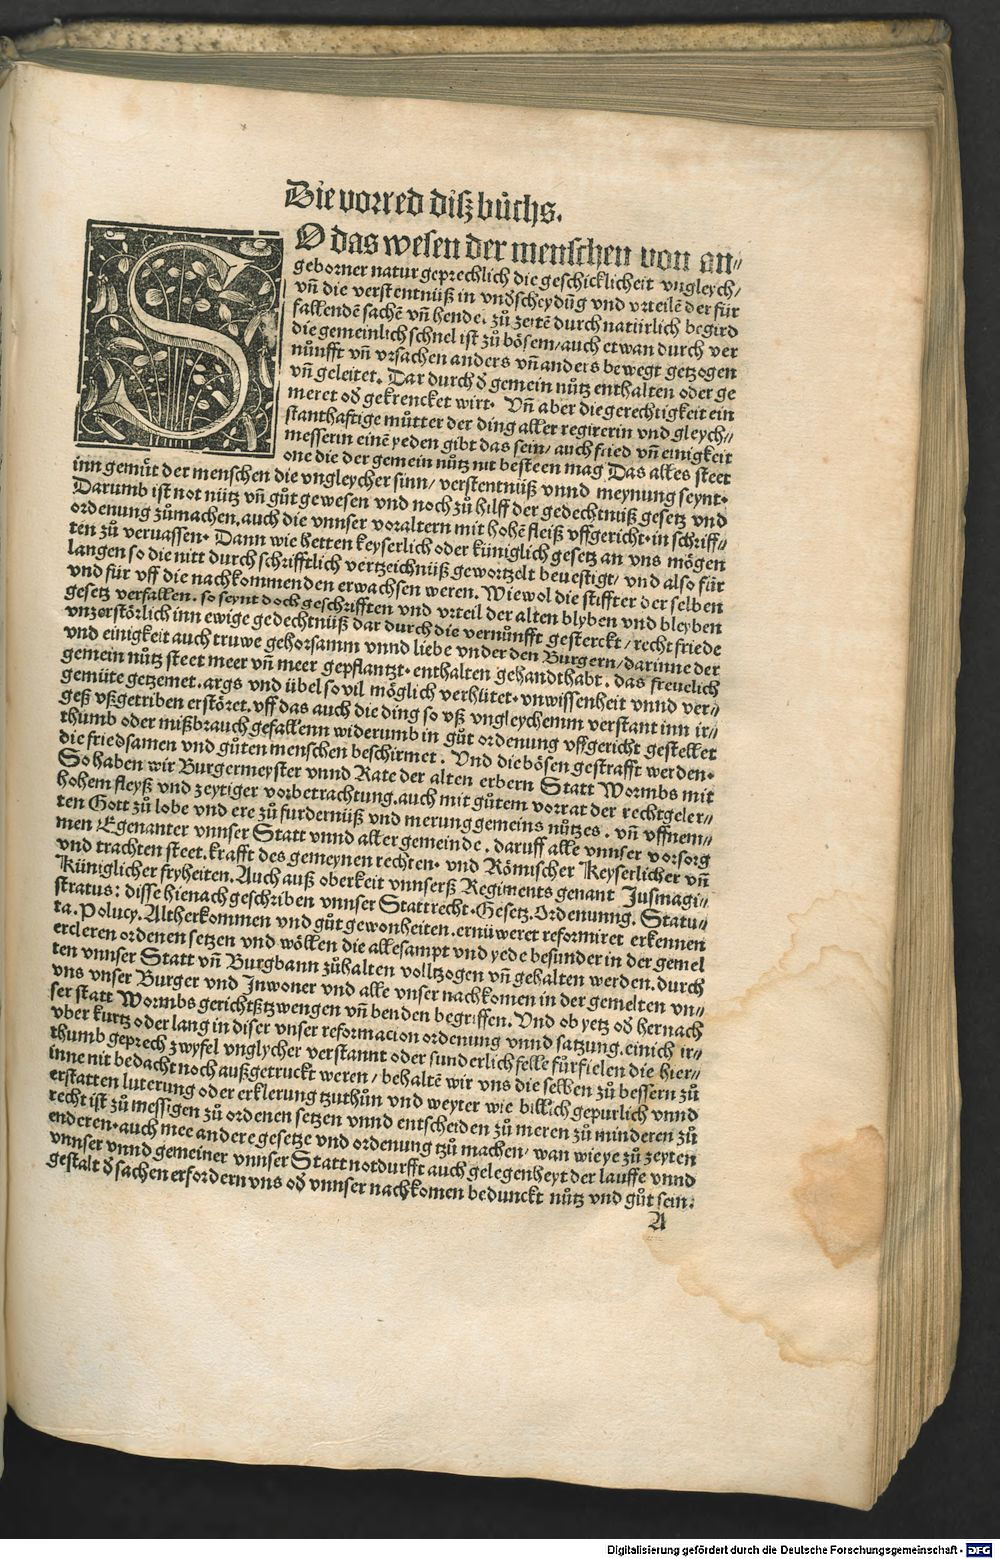 Die vorred diſz bůchs.
SO das weſen der menſchen von an⸗
geborner natur geprechlich die geſchicklicheit vngleych/
vn̄ die verſtentnüß in vnďſcheydūg vnd vrteilē der für
fallendē ſachē vn̄ hende. zů zeitē durch natürlich begird
die gemeinlich ſchnel iſt zů böſem/auch etwan durch ver
nůnfft vn̄ vrſachen anders vn̄ anders bewegt getzogen
vn̄ geleitet. Dar durch ď gemein nůtz enthalten oder ge
meret oď gekrencket wirt. Vn̄ aber die gerechtigkeit ein
ſtanthaftige můtter der ding aller regirerin vnd gleych⸗
meſſerin einē yeden gibt das ſein/ auch fried vn̄ einigkeit
one die der gemein nůtz nit beſteen mag Das alles ſteet
inn gemůt der menſchen die vngleycher ſinn/ verſtentnüß vnnd meynung ſeynt.
Darumb iſt not nütz vn̄ gůt geweſen vnd noch zů hilff der gedechtnuß geſetz vnd
ordenung zůmachen. auch die vnnſer voraltern mit hohē fleiß vffgericht. in ſchriff⸗
ten zů veruaſſen. Dann wie hetten keyſerlich oder küniglich geſetz an vns mögen
langen ſo die nitt durch ſchrifftlich vertzeichnüß gewortzelt beueſtigt/ vnd alſo für
vnd für vff die nachkommenden erwachſen weren. Wiewol die ſtiffter der ſelben
geſetz verfallen. ſo ſeynt doch geſchrifften vnd vrteil der alten blyben vnd bleyben
vnzerſtörlich inn ewige gedechtnüß dar durch die vernůnfft geſterckt/ recht friede
vnd einigkeit auch truwe gehorſamm vnnd liebe vnder den Burgern/ darinne der
gemein nůtz ſteet meer vn̄ meer gepflantzt. enthalten gehandthabt. das freuelich
gemüte getzemet. args vnd übel ſo vil möglich verhütet. vnwiſſenheit vnnd ver⸗
geß vßgetriben erſtöret. vff das auch die ding ſo vß vngleychemm verſtant inn ir⸗
thumb oder mißbrauch gefallenn widerumb in gůt ordenung vffgericht geſtellet
die friedſamen vnd gůten menſchen beſchirmet. Vnd die böſen geſtrafft werden.
So haben wir Burgermeyſter vnnd Rate der alten erbern Statt Wormbs mit
hohem fleyß vnd zeytiger vorbetrachtung. auch mit gůtem vorrat der rechtgeler⸗
ten Gott zů lobe vnd ere zů furdernüß vnd merung gemeins nůtzes. vn̄ vffnem⸗
men Egenanter vnnſer Statt vnnd aller gemeinde. daruff alle vnnſer vorſorg
vnd trachten ſteet. krafft des gemeynen rechten. vnd Römiſcher Keyſerlicher vn̄
Küniglicher fryheiten. Auch auß oberkeit vnnſerß Regiments genant Jusmagi⸗
ſtratus: diſſe hienach geſchriben vnnſer Stattrecht. Geſetz. Ordenunng. Statu⸗
ta. Polucy. Altherkommen vnd gůt gewonheiten. ernüweret reformiret erkennen
ercleren ordenen ſetzen vnd wöllen die alleſampt vnd yede beſunder in der gemel
ten vnnſer Statt vn̄ Burgbann zůhalten volltzogen vn̄ gehalten werden. durch
vns vnſer Burger vnd Jnwoner vnd alle vnſer nachkomen in der gemelten vn⸗
ſer ſtatt Wormbs gerichtßtzwengen vn̄ benden begriffen. Vnd ob yetz oď hernach
vber kurtz oder lang in diſer vnſer reformacion ordenung vnnd ſatzung. einich ir⸗
thumb geprech zwyfel vnglycher verſtannt oder ſunderlich felle fürfielen die hier⸗
inne nit bedacht noch außgetruckt weren/ behaltē wir vns die ſelben zů beſſern zů
erſtatten luterung oder erklerung tzuthůn vnd weyter wie billich gepurlich vnnd
recht iſt zů meſſigen zů ordenen ſetzen vnnd entſcheiden zů meren zů minderen zů
enderen. auch mee andere geſetze vnd ordenung tzů machen/ wan wie ye zů zeyten
vnnſer vnnd gemeiner vnnſer Statt notdurfft auch gelegenheyt der lauffe vnnd
geſtalt ď ſachen erfordern vns oď vnnſer nachkomen bedunckt nůtz vnd gůt ſein.
A
Digitalisierung gefördert durch die Deutsche Forschungsgemeinschaft - DFG